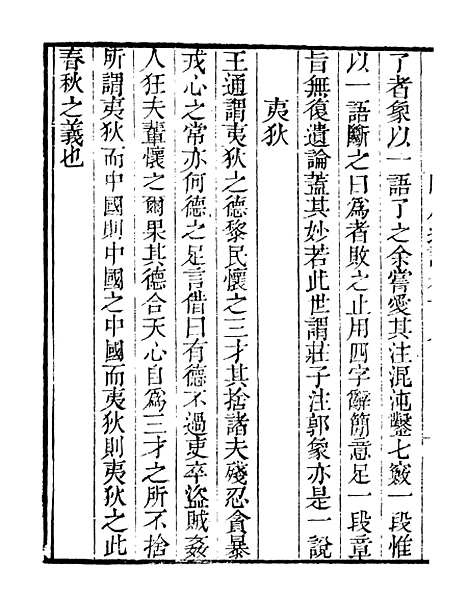 了者象以一語了之余嘗愛其注混沌鑿七竅一段惟
以一語斷之曰爲者敗之止用四字辭簡意足一段章
旨無復遺論蓋其妙若此世謂莊子注郭象亦是一說
夷狄
王通謂夷狄之德黎民懷之三才其捨諸夫殘忍貪暴
戎心之常亦何德之足言借曰有德不過吏卒盜賊姦
人狂夫輩懷之爾果其德合天心自爲三才之所不捨
所謂夷狄而中國則中國之中國而夷狄則夷狄之此
春秋之義也